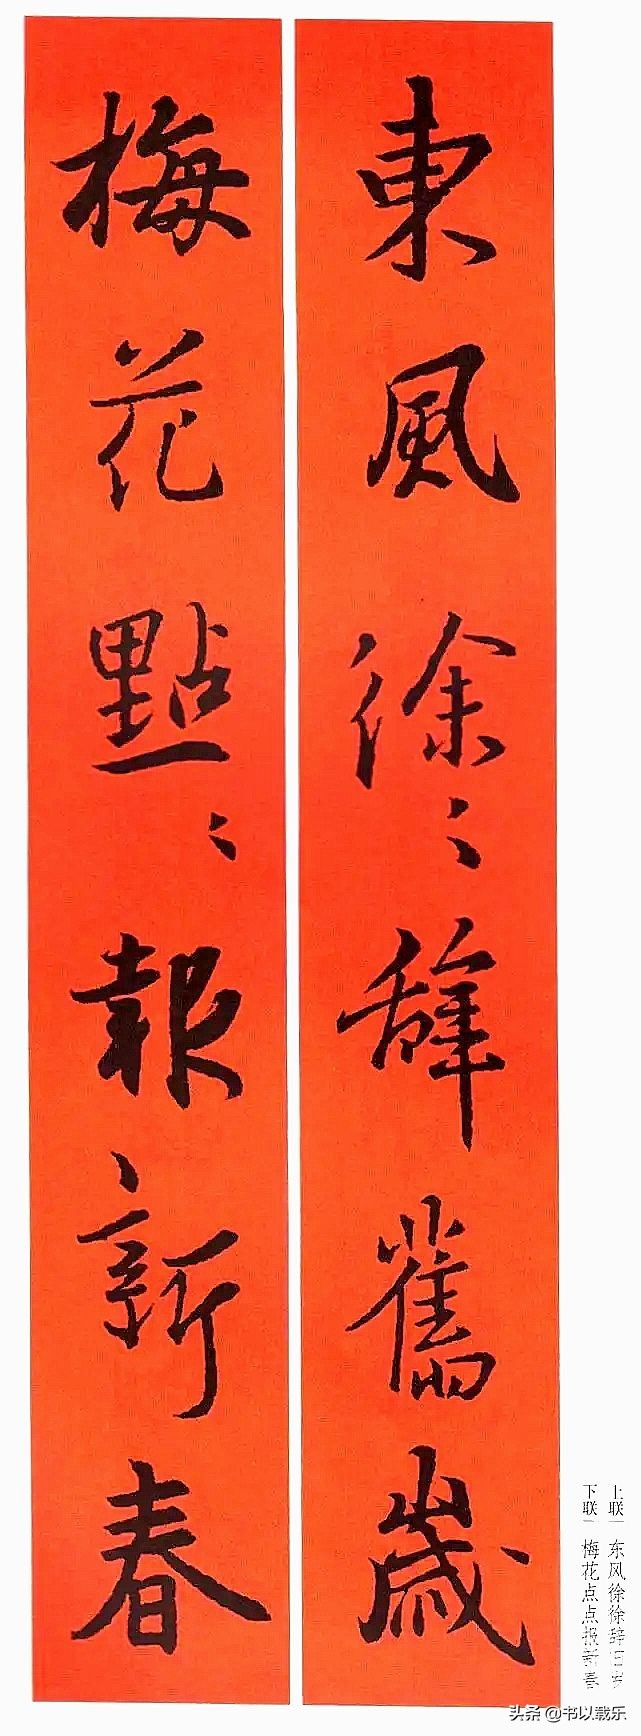 東風徐〻辭舊歲
梅花點〻報新春
上联 东风徐徐辞旧岁
下联 梅花点点报新春
头条 @书以载乐